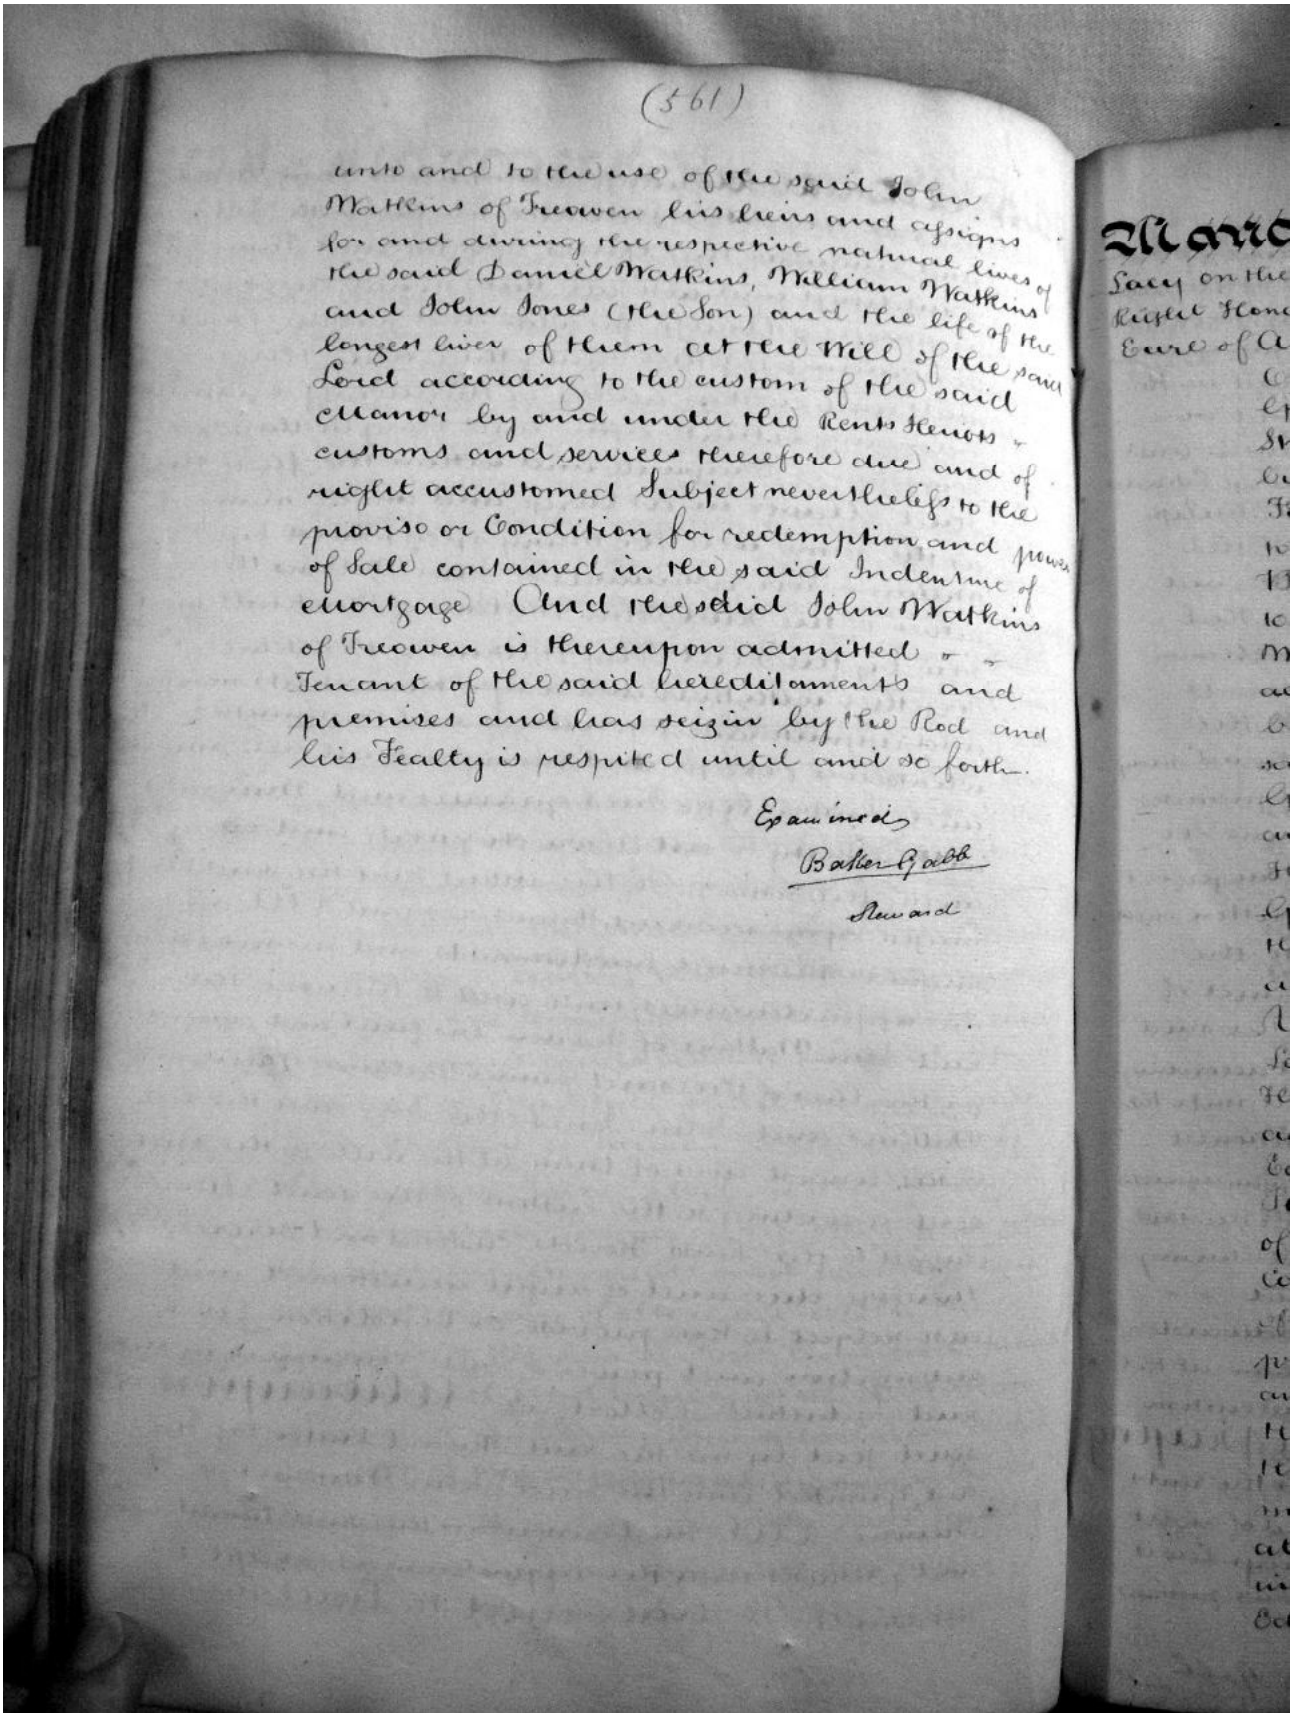 (561)
unto and to the use of the said John
Watkins of Treowen his heirs and assigns
for and during the respective natural lives of
the said Daniel Watkins, William Watkins
and John Jones (the Son) and the life of the
longest liver of them at the Will of the said
Lord according to the custom of the said
Manor by and under the Rents Heriots
customs and services therefore due and of
right accustomed Subject nevertheless to the
proviso or Condition for redemption and power
of Sale contained in the said Indenture of
Mortgage And the said John Watkins
of Treowen is thereupon admitted
Tenant of the said hereditaments and
premises and has seizin by the Rod and
his Fealty is respited until and so forth.
Examined
Baker Gabb
Steward
Lacy on the
Right Hono
Eure of A